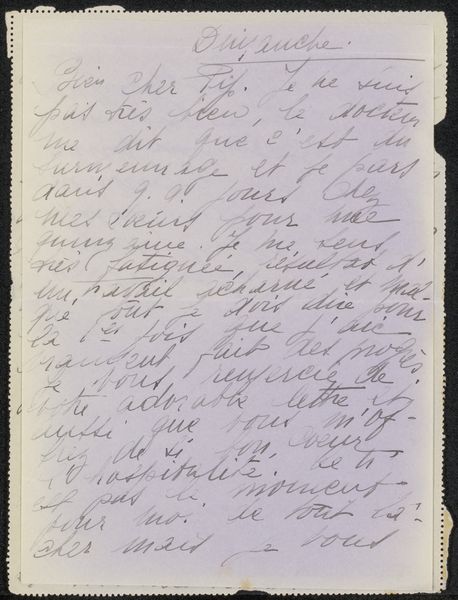 Dimanche.
Bien cher Pip. Je ne suis
pas très bien, le docteur
me dit que c'est du
surmenage et je pars
dans q.q. jours chez
mes sœurs pour une
quinzaine. Je me sens
très fatiguée, résultat d'
un travail acharné, et mal-
gré tout je dois dire pour
la 1ère fois que j'ai
vraiment fait des progrès.
Je vous remercie de
votre adorable lettre et
aussi que vous m'of-
friez de si bon cœur
l'hospitalité. Ce n'
est pas le moment
pour moi de tout lâ-
cher mais je vous